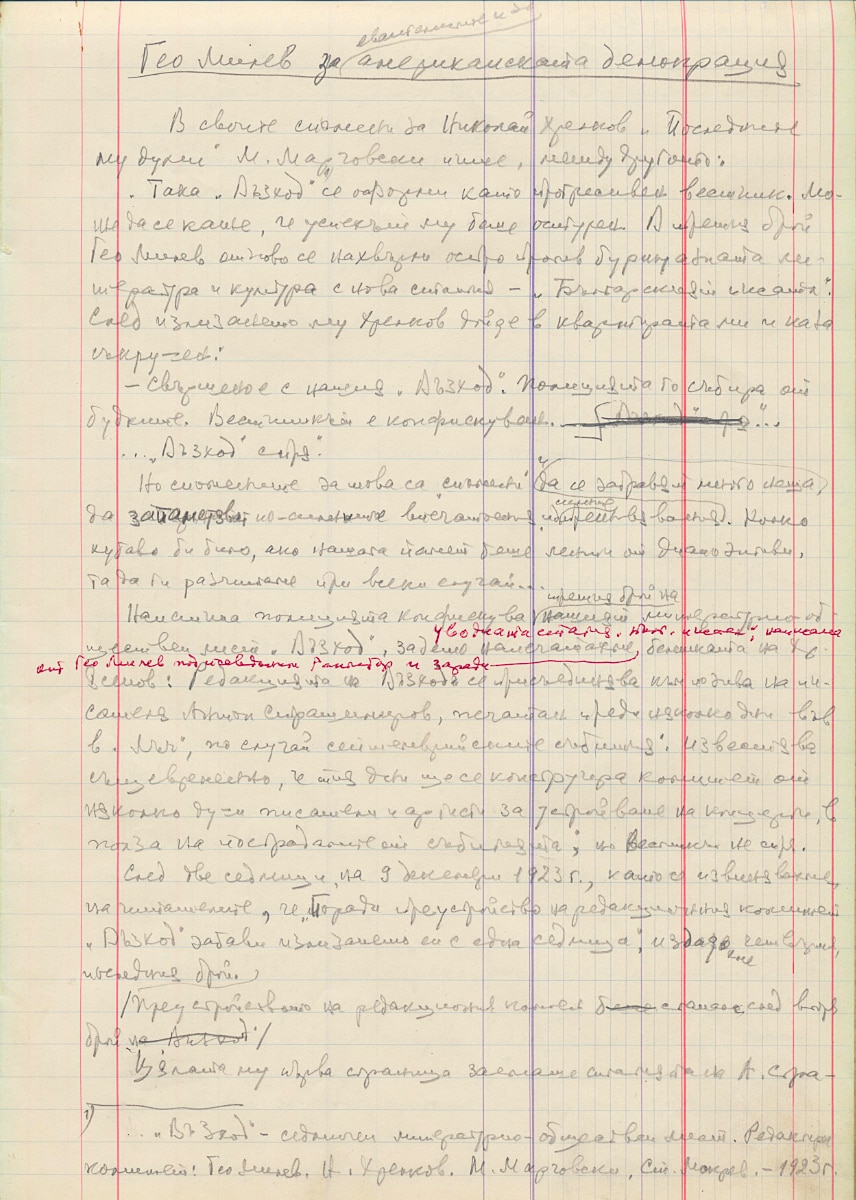 евангелието и за
Гео Милев за американската демокрация
В своите спомени за Николай Хрелков и "Последните
му думи" М. Марчевски пише, между другото:
. Така "Възход" се оформи като прогресивен вестник. Мо-
же да се каже, че успехът му беше осигурен. В третия брой
Гео Милев отново се нахвърли остро против буржуазната ли-
тература и култура с нова статия – "Българският писател".
След излизането му Хрелков дойде в квартирата ми и каза
съкрушен:
– Свършено е с нашия "Възход". Полицията го събира от
будките. Вестникът е конфискуван. "Възход"
... "Възход" спря".
Но спомените за това са "спомени" да се забравят много неща,
да по-силните впечатления и преживявания. Колко
хубаво би било, ако нашата памет беше от диапозитиви,
та да ги разчитаме при всеки случай...
третия брой на
Наистина полицията конфискува нашият литературно-об
уводната статия, написана
ществен лист "Възход", задето напечатахме бележката на
от Гео Милев и заради
: Редакцията на Възход се присъединява към позива на пи-
сателя Антон Страшимиров, печатан преди няколко дни във
в. , по случай септемврийските събития". Известява
същевременно, че тия дни ще се конструира комитет от
няколко души писатели и артисти за устройване на концерти, в
полза на пострадалите от събитията", но Вестникът не спря.
След две седмици, на 9 декември 1923 г., като се извинявахме
на читателите, че "Поради преустройство на редакционния комитет
"Възход" забави излизането си с една седмица", издадохме четвъртия,
последния брой.
/Преустройството на редакционния комитет беше станало след втория
брой на "Възход"/
Цялата му първа страница заемаше статията на А. Стра-
1) ... "Възход" – седмичен литературно-обществен лист. Редакционен
комитет: Гео Милев, Н. Хрелков, М. Марчевски, Ст. Мокрев. – 1923 г.